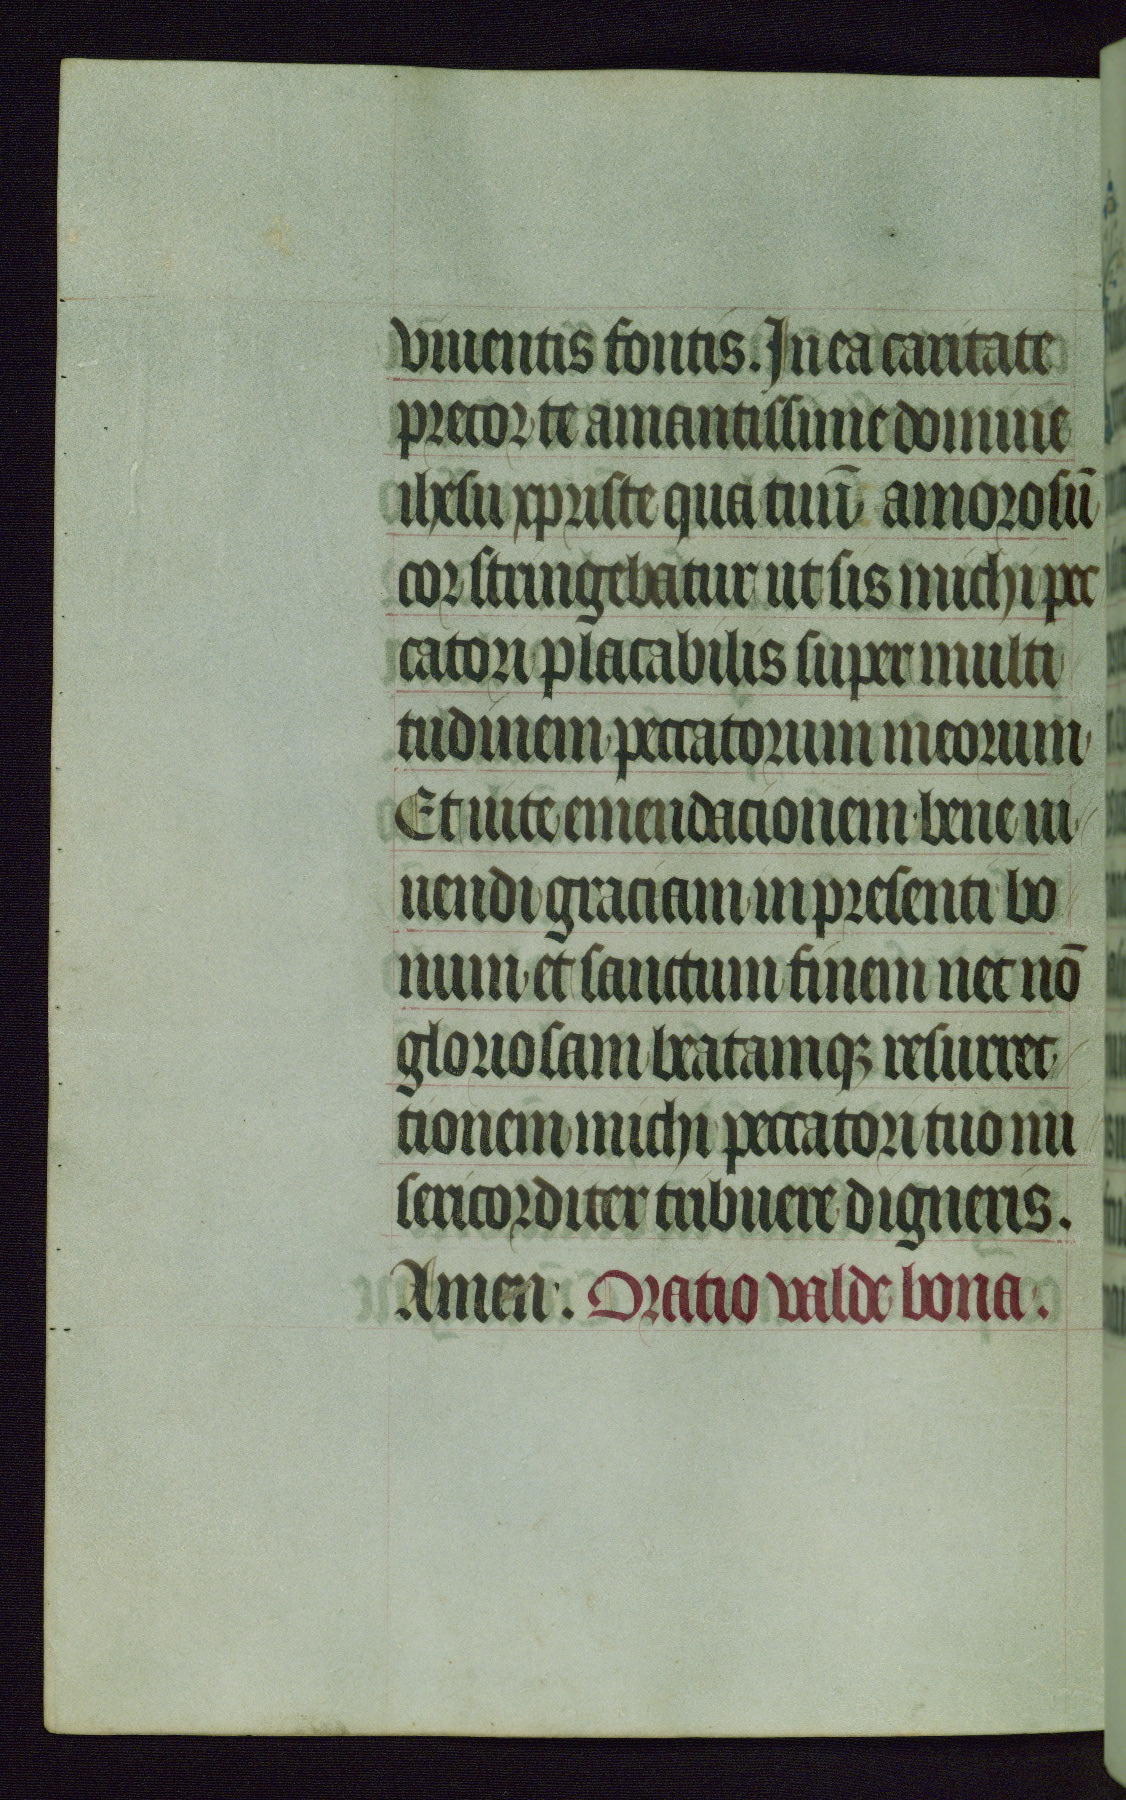 viuentis fontis. In ea caritate
precor te amantissime domine
ihesu xpriste qua tuū amorosū
cor stringebatur ut sis michi pec
catori placabilis super multi
tudinem peccatorum meorum
Et uite emendacionem bene ui
uendi graciam in presenti bo
num et sanctum finem nec nō
gloriosam beatamqꝫ resurrec
tionem michi peccatori tuo mi
sericorditer tribuere digneris.
Amen. Oratio valde bona.